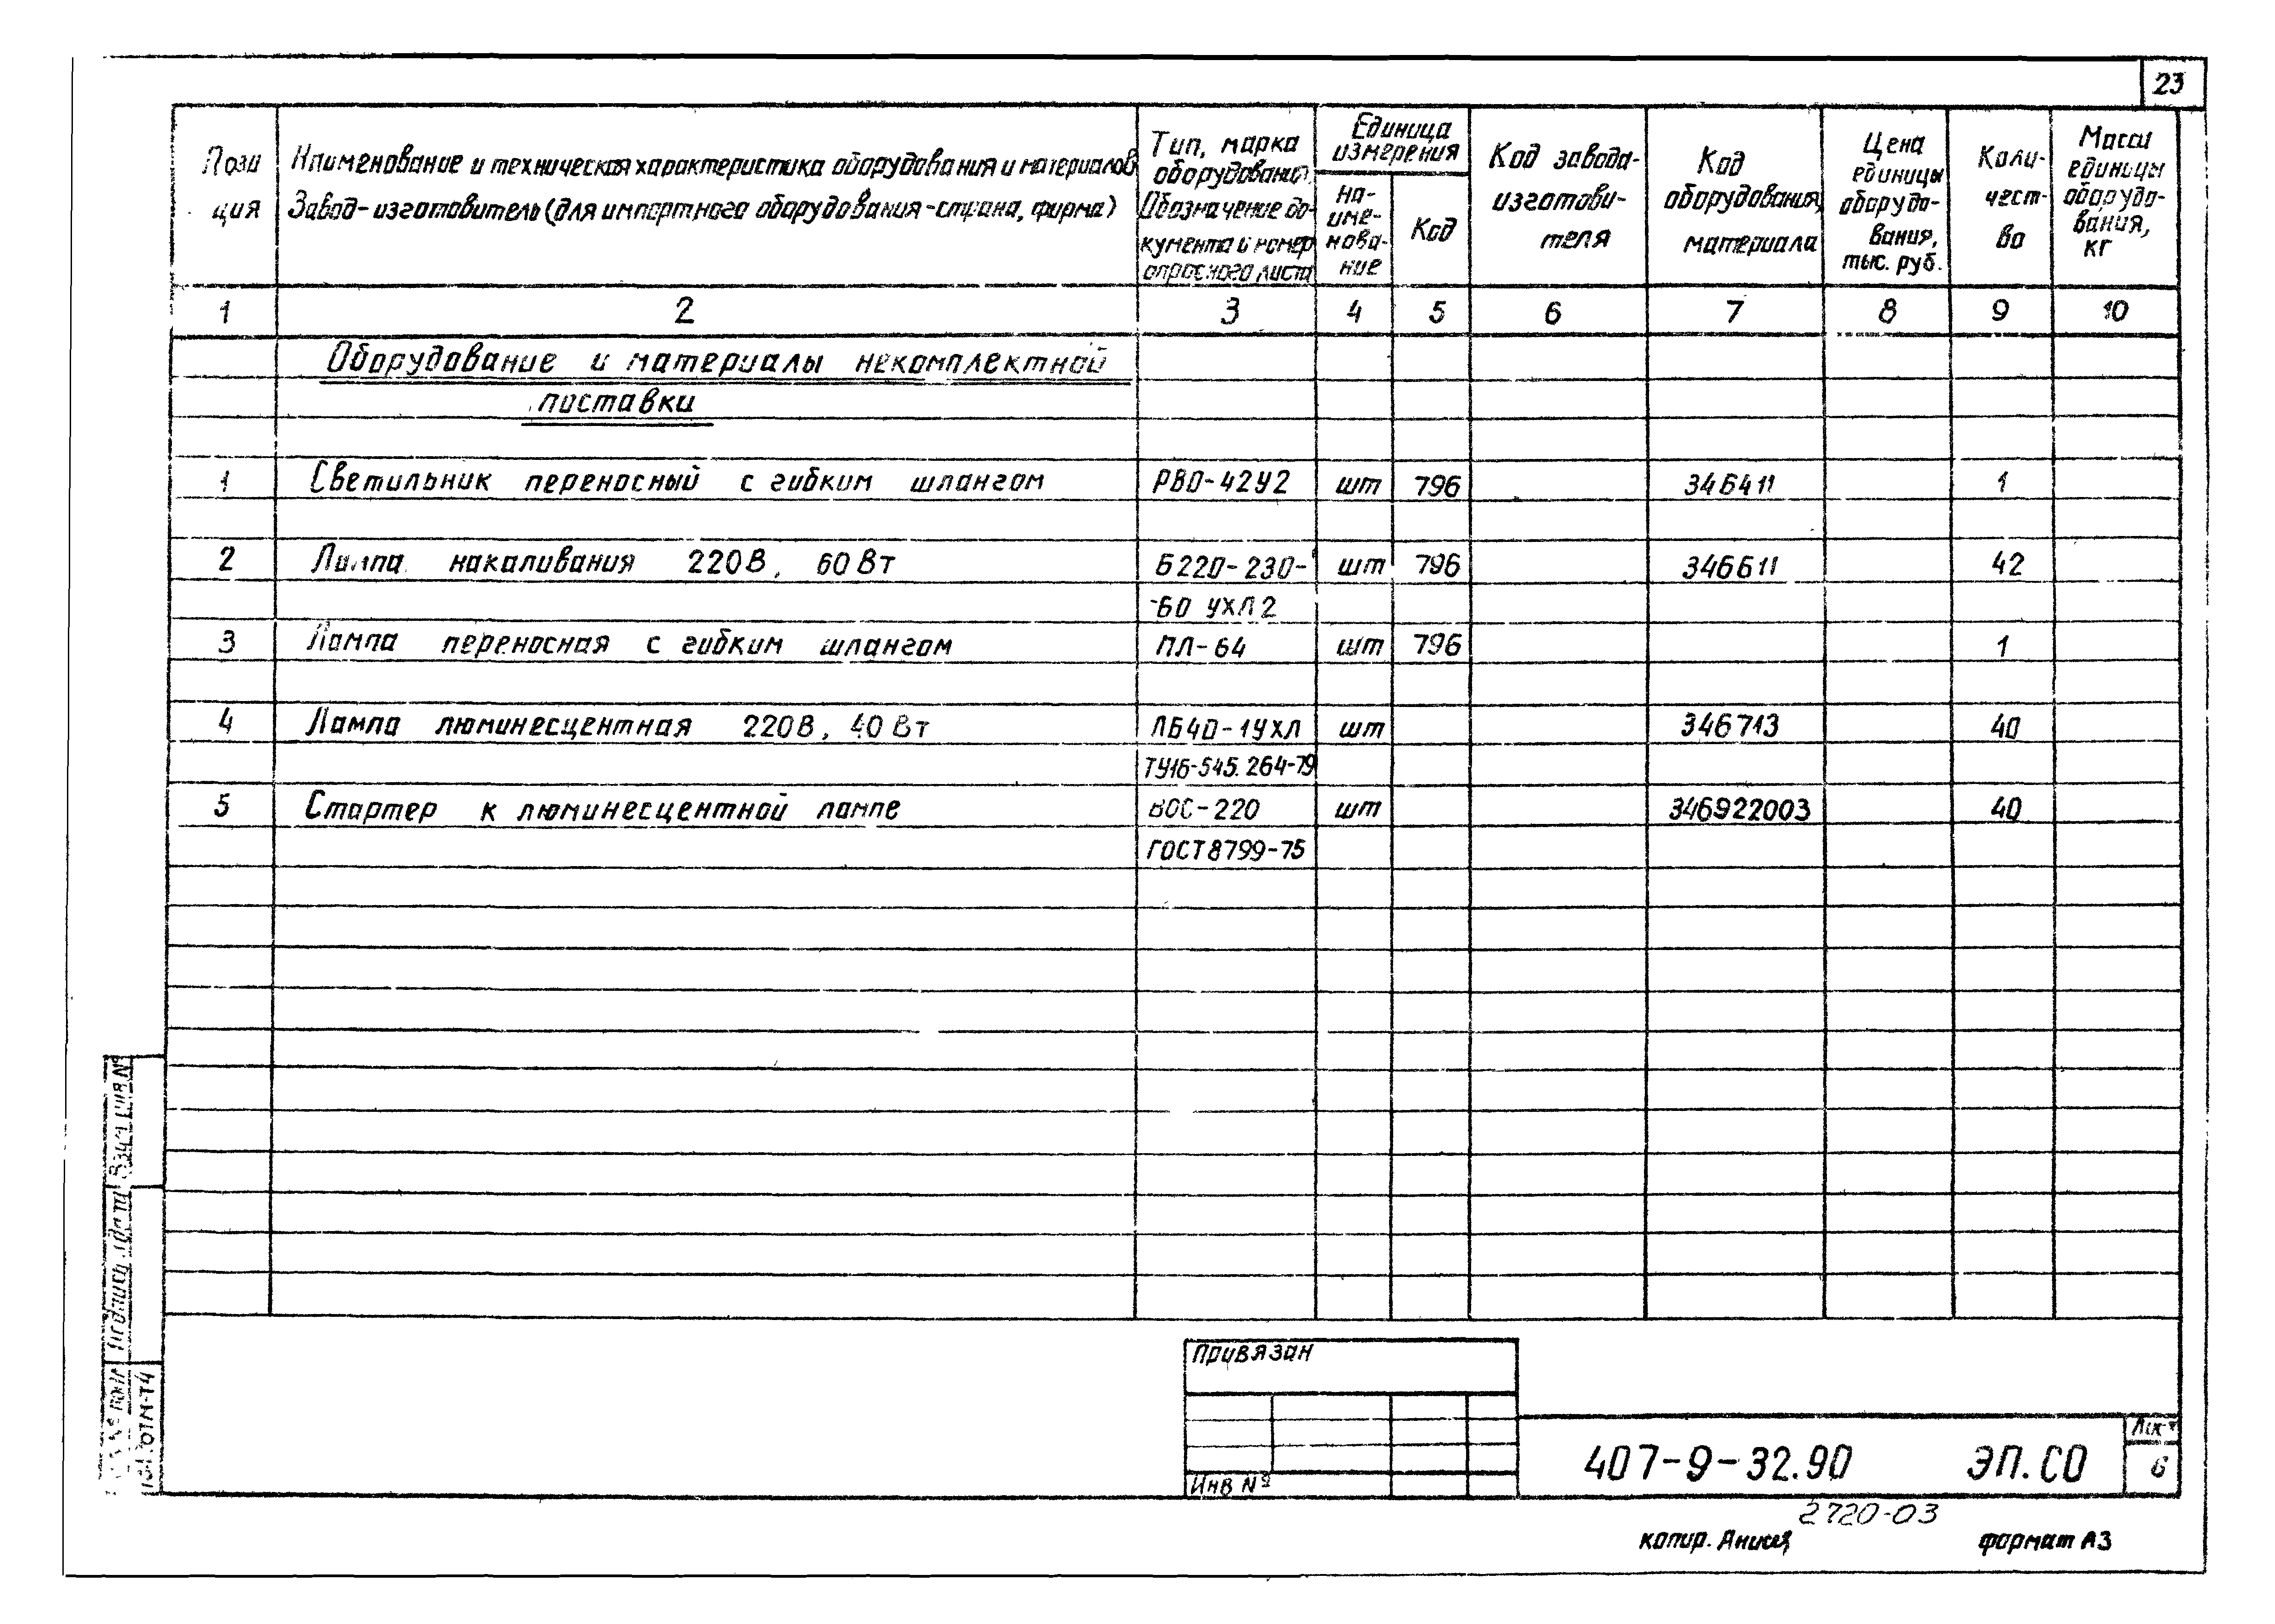 23
Пози
ция
Наименование и техническая характеристика оборудования и материалов
Завод-изготовитель (для импортного оборудования-страна, фирма)
Тип, марка
оборудования.
Обозначение до-
кумента и номер
опросного листа
Единица
измерения
на-
име-
нова-
ние
Код
Код завода-
изготови-
теля
Код
оборудования,
материала
Цена
единицы
оборудо-
вания,
тыс. руб.
Коли-
чест-
во
Масса
единицы
оборудо-
вания,
кг
1 2 3 4 5 6 7 8 9 10
Оборудование и материалы некомплектной
поставки
1 Светильник переносный с гибким шлангом РВО-42У2 шт 796 346411 1
2 Лампа накаливания 220В, 60Вт Б220-230- шт 796 346611 42
-60 УХЛ2
3 Лампа переносная с гибким шлангом ПЛ-64 шт 796 1
4 Лампа люминесцентная 220В, 40Вт ЛБ40-1УХЛ шт 346713 40
ТУ16-545.264-79
5 Стартер к люминесцентной лампе ВОС-220 шт 346922003 40
ГОСТ8799-75
Взам. инв. №
Подпись и дата
№ подл
ОТМ-Т4
Привязан
Инв №
407-9-32.90 ЭП.СО
Лист
6
2720-03
копир. формат А3